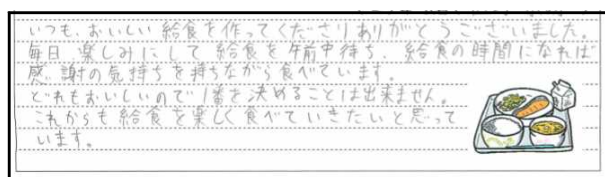 いつも、おいしい給食を作ってくださりありがとうございました。
毎日楽しみにして給食を午前中待ち、給食の時間になれば
感謝の気持ちを持ちながら食べています。
どれもおいしいので1番を決めることは出来ません。
これからも給食を楽しく食べていきたいと思って
います。